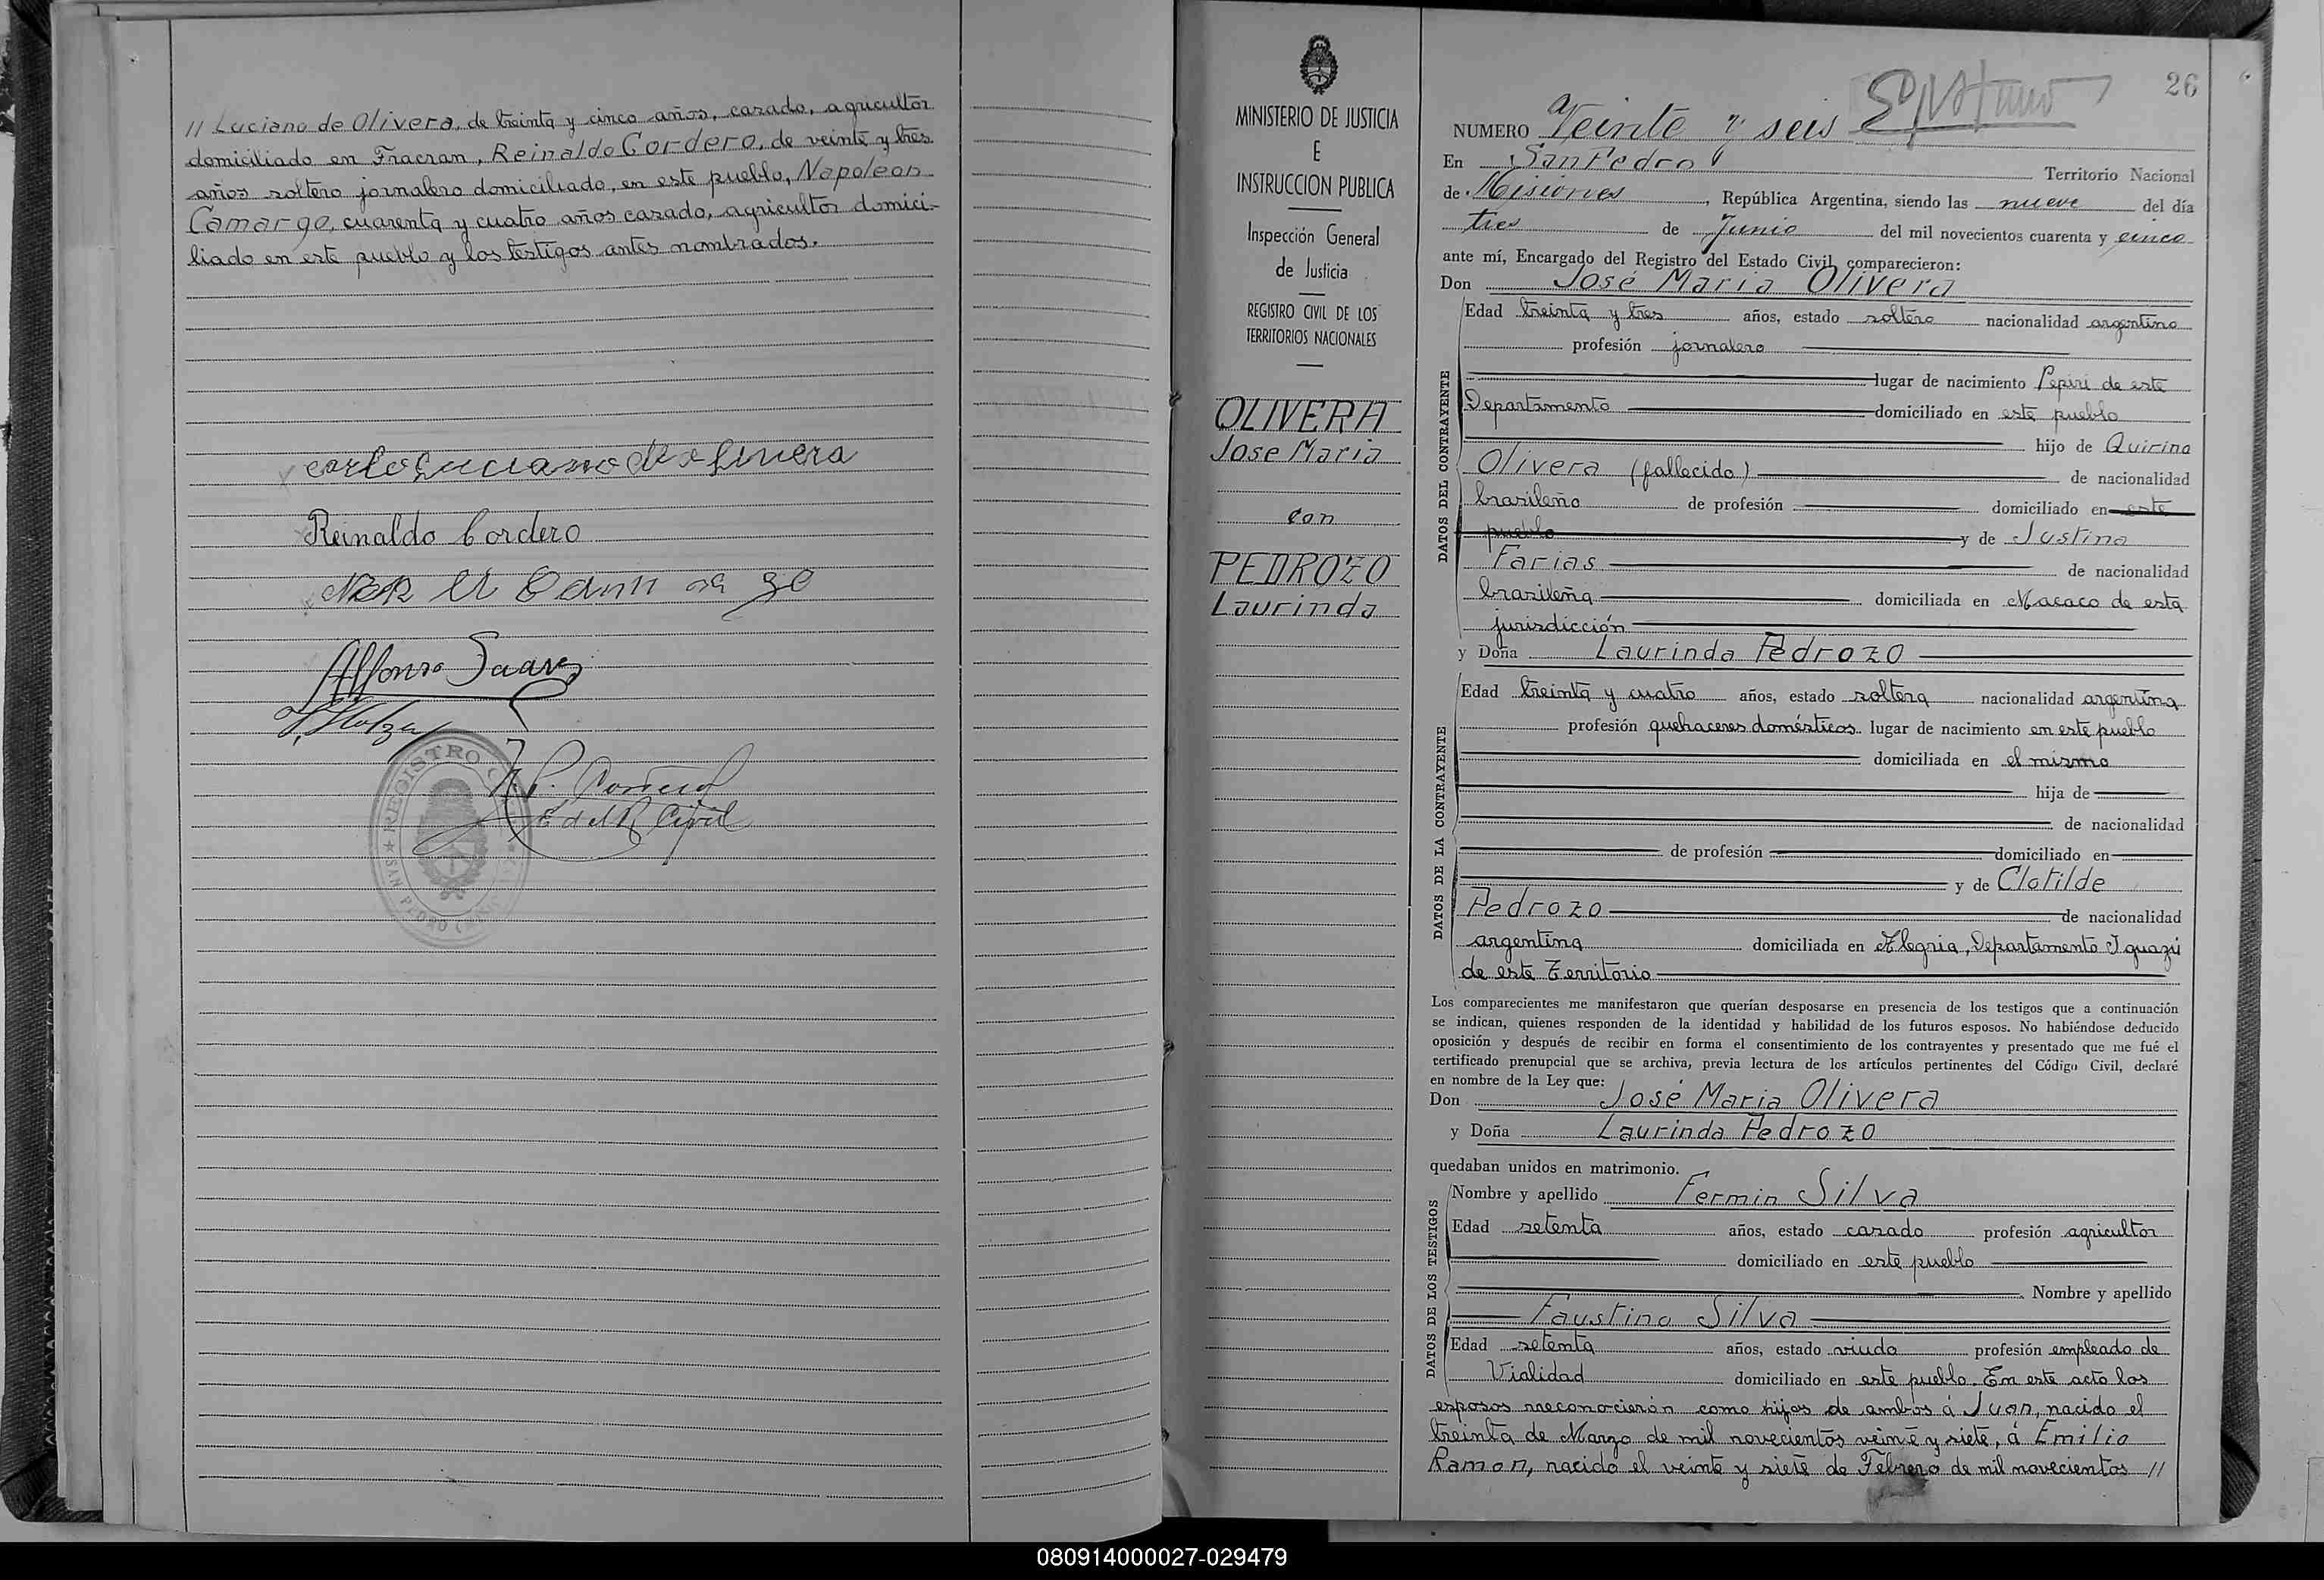 // Luciano de Olivera, de treinta y cinco años, casado, agricultor
domiciliado en Fracran, Reinaldo Cordero, de veinte y tres
años soltero jornalero domiciliado, en este pueblo, Napoleon
Camargo, cuarenta y cuatro años casado, agricultor domici-
liado en este pueblo y los testigos antes nombrados.
Reinaldo Cordero
Alfonso Suarez
REGISTRO
SAN PEDRO
E del R Civil
MINISTERIO DE JUSTICIA
E
INSTRUCCION PUBLICA
Inspección General
de Justicia
REGISTRO CIVIL DE LOS
TERRITORIOS NACIONALES
OLIVERA
Jose Maria
con
PEDROZO
Laurinda
26
NUMERO Veinte y seis
En San Pedro Territorio Nacional
de Misiones, República Argentina, siendo las nueve del día
tres de Junio del mil novecientos cuarenta y cinco
ante mí, Encargado del Registro del Estado Civil, comparecieron:
Don José Maria Olivera
DATOS DEL CONTRAYENTE
Edad treinta y tres años, estado soltero nacionalidad argentino
profesión jornalero
lugar de nacimiento Pepiri de este
Departamento domiciliado en este pueblo
hijo de Quirino
Olivera (fallecido) de nacionalidad
brasileño de profesión domiciliado en este
pueblo y de Justina
Farias de nacionalidad
brasileña domiciliada en Macaco de esta
jurisdicción
y Doña Laurinda Pedrozo
DATOS DE LA CONTRAYENTE
Edad treinta y cuatro años, estado soltera nacionalidad argentina
profesión quehaceres domésticos lugar de nacimiento en este pueblo
domiciliada en el mismo
hija de
de nacionalidad
de profesión domiciliado en
y de Clotilde
Pedrozo de nacionalidad
argentina domiciliada en Alegria, Departamento Iguazú
de este Territorio
Los comparecientes me manifestaron que querían desposarse en presencia de los testigos que a continuación
se indican, quienes responden de la identidad y habilidad de los futuros esposos. No habiéndose deducido
oposición y después de recibir en forma el consentimiento de los contrayentes y presentado que me fué el
certificado prenupcial que se archiva, previa lectura de los artículos pertinentes del Código Civil, declaré
en nombre de la Ley que:
Don José Maria Olivera
y Doña Laurinda Pedrozo
quedaban unidos en matrimonio.
DATOS DE LOS TESTIGOS
Nombre y apellido Fermin Silva
Edad setenta años, estado casado profesión agricultor
domiciliado en este pueblo
Nombre y apellido
Faustino Silva
Edad setenta años, estado viudo profesión empleado de
Vialidad domiciliado en este pueblo. En este acto los
esposos reconocieron como hijos de ambos á Juan, nacido el
treinta de Marzo de mil novecientos veinte y siete, á Emilio
Ramon, nacido el veinte y siete de Febrero de mil novecientos //
080914000027-029479